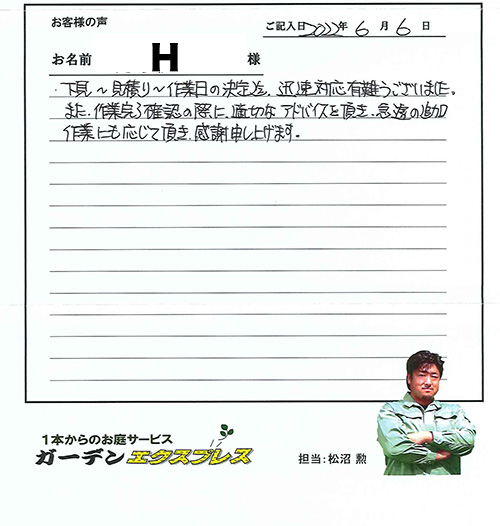 お客様の声
ご記入日 2022年 6月 6日
お名前 H 様
・下見～見積り～作業日の決定迄、迅速対応有難うございました。
また、作業完了確認の際に、適切なアドバイスを頂き、急遽の追加
作業にも応じて頂き、感謝申し上げます。
1本からのお庭サービス
ガーデンエクスプレス
担当:松沼 勲